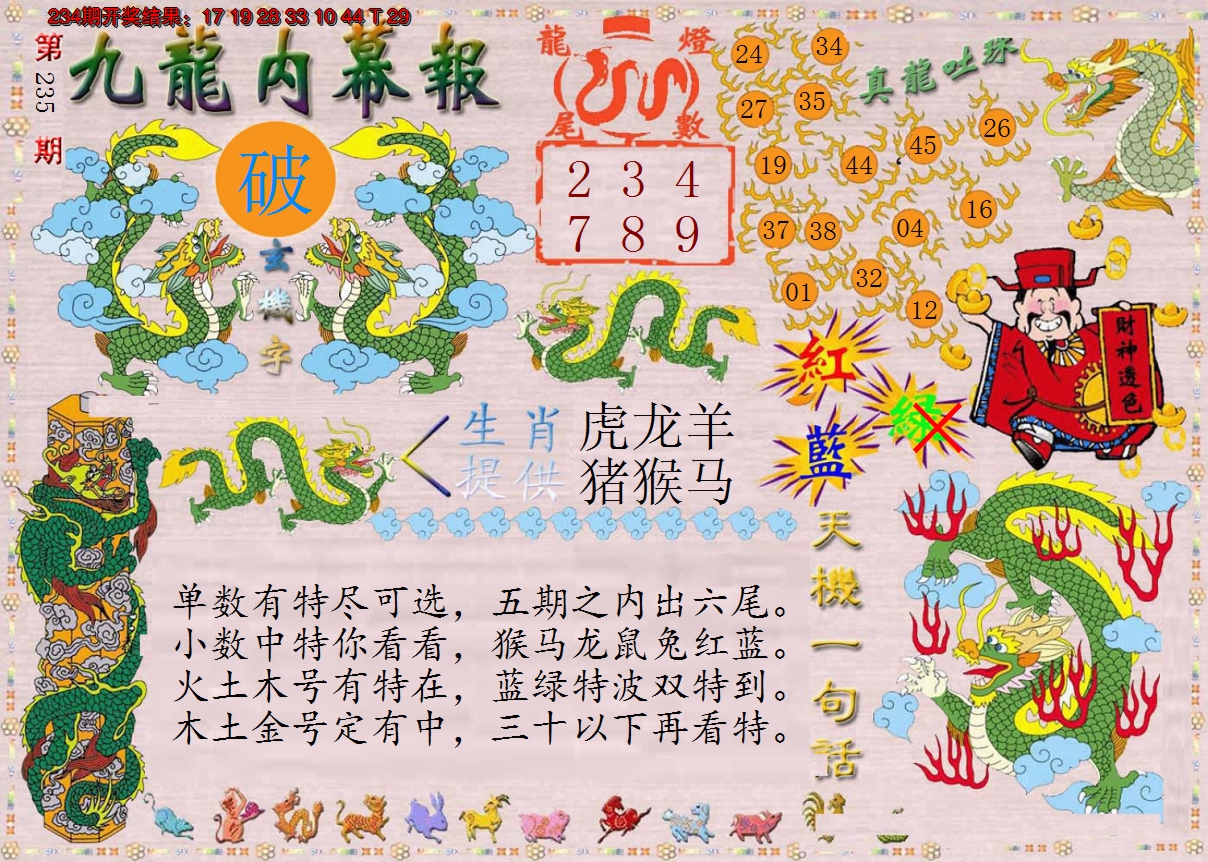 234期开奖结果：17 19 28 33 10 44 T 29
第235期
九龍内幕報
破
玄機字
龍燈
尾數
2 3 4
7 8 9
真龍吐珠
24
34
27
35
26
45
19
44
16
37
38
04
32
01
12
財神透色
紅
綠
藍
生肖 虎龙羊
提供 猪猴马
天機一句話
单数有特尽可选，五期之内出六尾。
小数中特你看看，猴马龙鼠兔红蓝。
火土木号有特在，蓝绿特波双特到。
木土金号定有中，三十以下再看特。